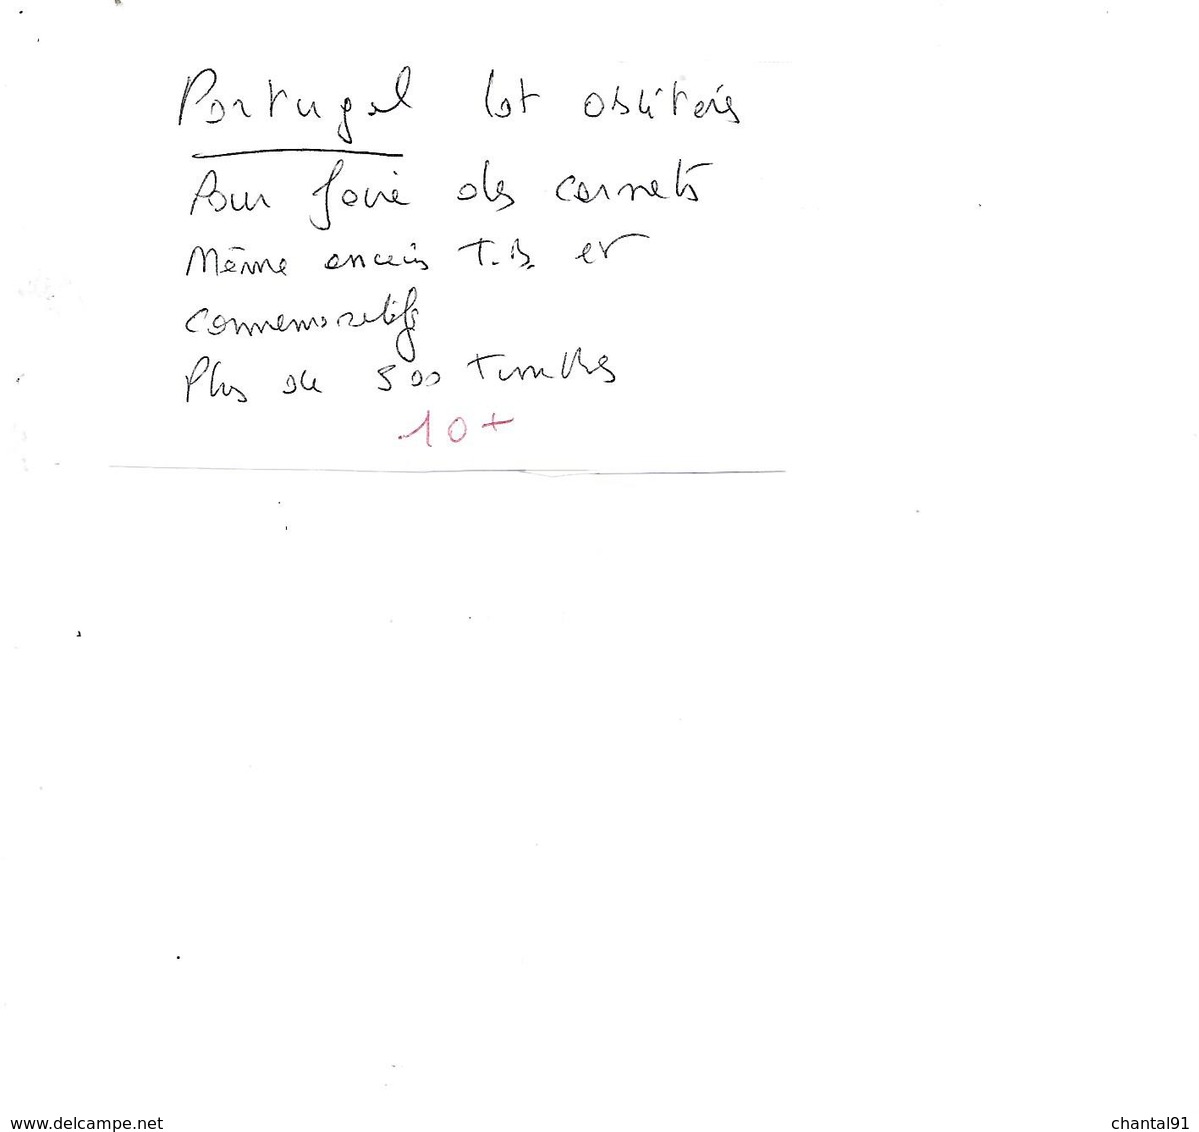 Portugal lot oblitérés
Pour faire des carnets
Même anciens T.B. et
commemoratifs
Plus de 500 timbres
10+
www.delcampe.net
chantal91